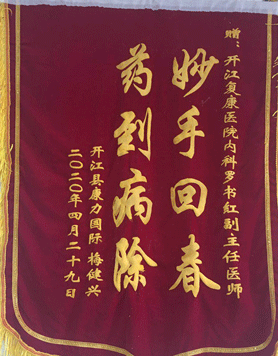 赠:开江复康医院内科罗书红副主任医师
妙手回春
药到病除
开江县康力国际 梅健兴
二〇二〇年四月二十九日